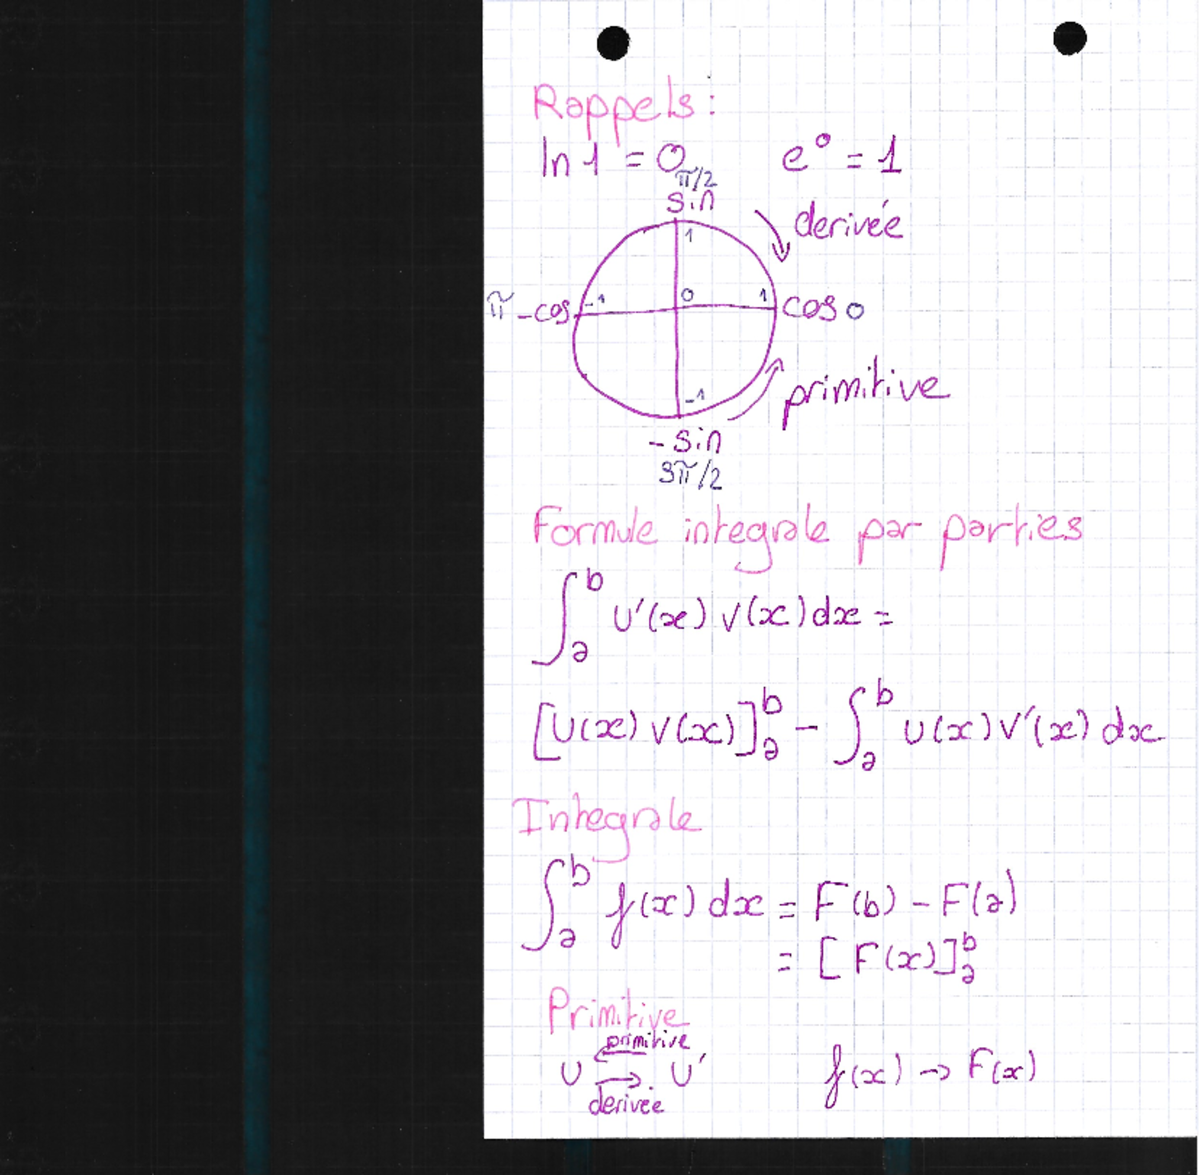 Rappels :
ln 1 = 0 e⁰ = 1
π/2
sin
derivée
1
π -cos -1 0 1 cos 0
primitive
-1
- sin
3π/2
Formule integrale par parties
∫ₐᵇ U'(x) V(x) dx =
[U(x) V(x)]ₐᵇ - ∫ₐᵇ U(x) V'(x) dx
Integrale
∫ₐᵇ f(x) dx = F(b) - F(a)
= [F(x)]ₐᵇ
Primitive
primitive
U ⇄ U' f(x) → F(x)
derivée